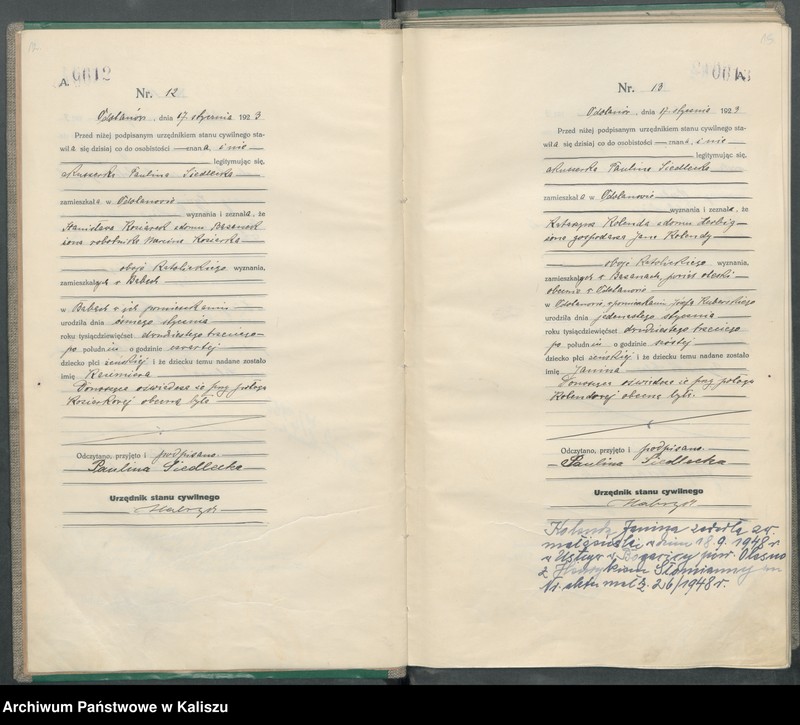 12.
A. 0012
Nr. 12
Odolanów, dnia 17 stycznia 1923
Przed niżej podpisanym urzędnikiem stanu cywilnego sta-
wiła się dzisiaj co do osobistości — znana, i nie
legitymując się,
akuszerka Paulina Siedlecka
zamieszkała w Odolanowie
wyznania i zeznała, że
Stanisława Kosiarek z domu
żona robotnika Marcina Kosiarka
oboje katolickiego wyznania,
zamieszkałych w
w ich pomieszkaniu
urodziła dnia ósmego stycznia
roku tysiącdziewięćset dwudziestego trzeciego
po południu o godzinie czwartej
dziecko płci żeńskiej i że dziecku temu nadane zostało
imię Kazimiera
Donosząca oświadcza że przy połogu
obecną była
Odczytano, przyjęto i podpisano.
Paulina Siedlecka
Urzędnik stanu cywilnego
A.
Nr. 13
Odolanów, dnia 17 stycznia 1923
Przed niżej podpisanym urzędnikiem stanu cywilnego sta-
wiła się dzisiaj co do osobistości — znana, i nie
legitymując się,
akuszerka Paulina Siedlecka
zamieszkała w Odolanowie
wyznania i zeznała, że
Katarzyna Kolenda z domu
żona gospodarza Jana Kolendy
oboje katolickiego wyznania,
zamieszkałych w
obecnie w Odolanowie
w Odolanowie w pomieszkaniu Józefa
urodziła dnia jedenastego stycznia
roku tysiącdziewięćset dwudziestego trzeciego
po południu o godzinie szóstej
dziecko płci żeńskiej i że dziecku temu nadane zostało
imię Janina
Donosząca oświadcza że przy połogu
Kolendowej obecną była.
Odczytano, przyjęto i podpisano.
Paulina Siedlecka
Urzędnik stanu cywilnego
Janina zawarła zw.
małżeński w dniu 18.9.1948 r.
w pow. Olesno
z Henrykiem
Nr. aktu małż. 26/1948 r.
Archiwum Państwowe w Kaliszu